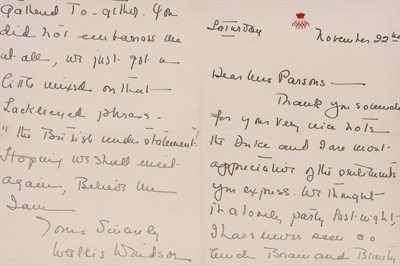 Saturday
November 22nd
Dear Miss Parsons —
Thank you so much
for your very nice note
the Duke and I are most
appreciative of the sentiments
you express. We thought
it a lovely party Post-night,
I have never seen so
much Brain and Beauty
gathered to-gether. You
did not embarrass me
at all, we just got a
little mixed on that
hackneyed phrase-
"the British understatement"!
Hoping we shall meet
again, Believe me
I am
Yours Sincerely
Wallis Windsor